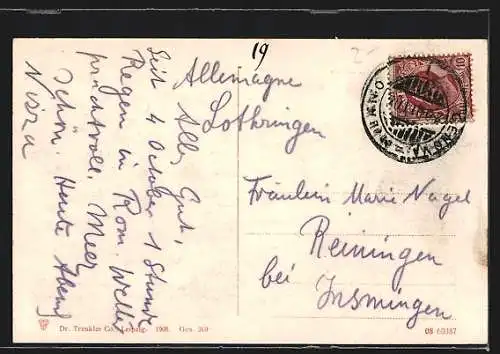 19
Allemagne
Lothringen
Alles Gut,
Seit 4 October 1 Stunde
Regen in Rom. Welle
prachtvoll. Meer
Schön. Heute Abend
Nizza
Fräulein Marie Nagel
Reiningen
bei Insmingen
GENOVA
Dr. Trenkler Co., Leipzig. 1908. Gen. 260
08 60387